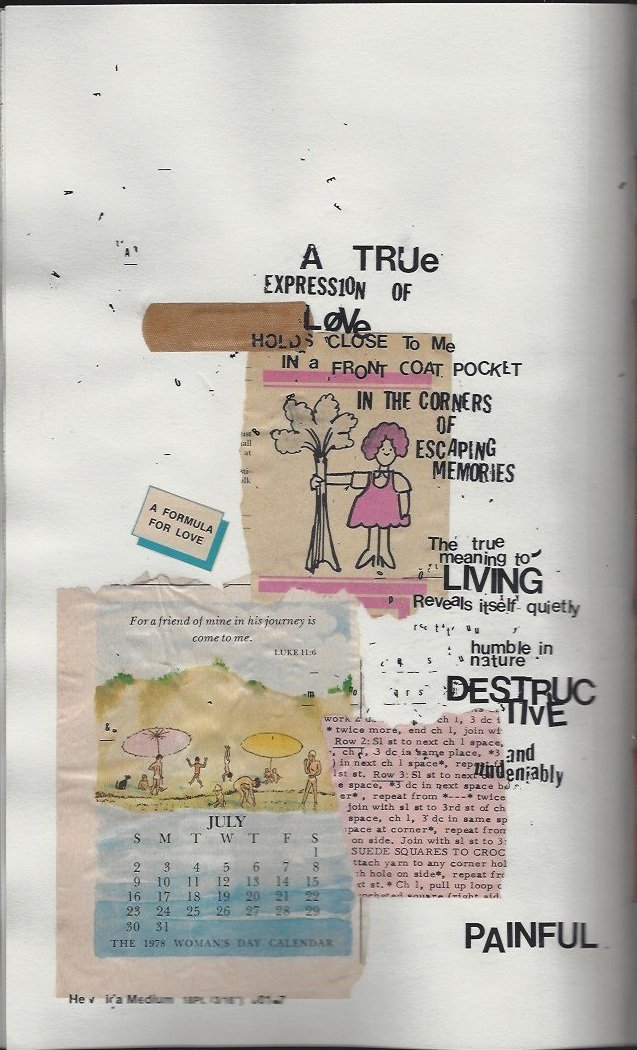 A TRUe
EXPRESS1ON OF
LøVe
HOLDS CLOSE To Me
IN a FRONT COAT POCKET
IN THE CORNERS
OF
ESCAPING
MEMORIES
A FORMULA
FOR LOVE
The true
meaning to
LIVING
Reveals itself quietly
humble in
nature
DESTRUC
TIVE
and
undeniably
PAINFUL
For a friend of mine in his journey is
come to me.
LUKE 11:6
JULY
S M T W T F S
1
2 3 4 5 6 7 8
9 10 11 12 13 14 15
16 17 18 19 20 21 22
23 24 25 26 27 28 29
30 31
THE 1978 WOMAN'S DAY CALENDAR
work ch 1, 3 dc i
* twice more, end ch 1, join wi
Row 2: Sl st to next ch 1 space,
, ch 1, 3 dc in same place, *3
) in next ch 1 space*, repe
1st st. Row 3: Sl st to next
e space, *3 dc in next space
er*, repeat from *---* twice
join with sl st to 3rd st of ch
space, ch 1, 3 dc in same sp
pace at corner*, repeat from
on side. Join with sl st to 3
SUEDE SQUARES TO CROC
ttach yarn to any corner hol
h hole on side*, repeat fr
ct st. * Ch 1, pull up loop
Medium